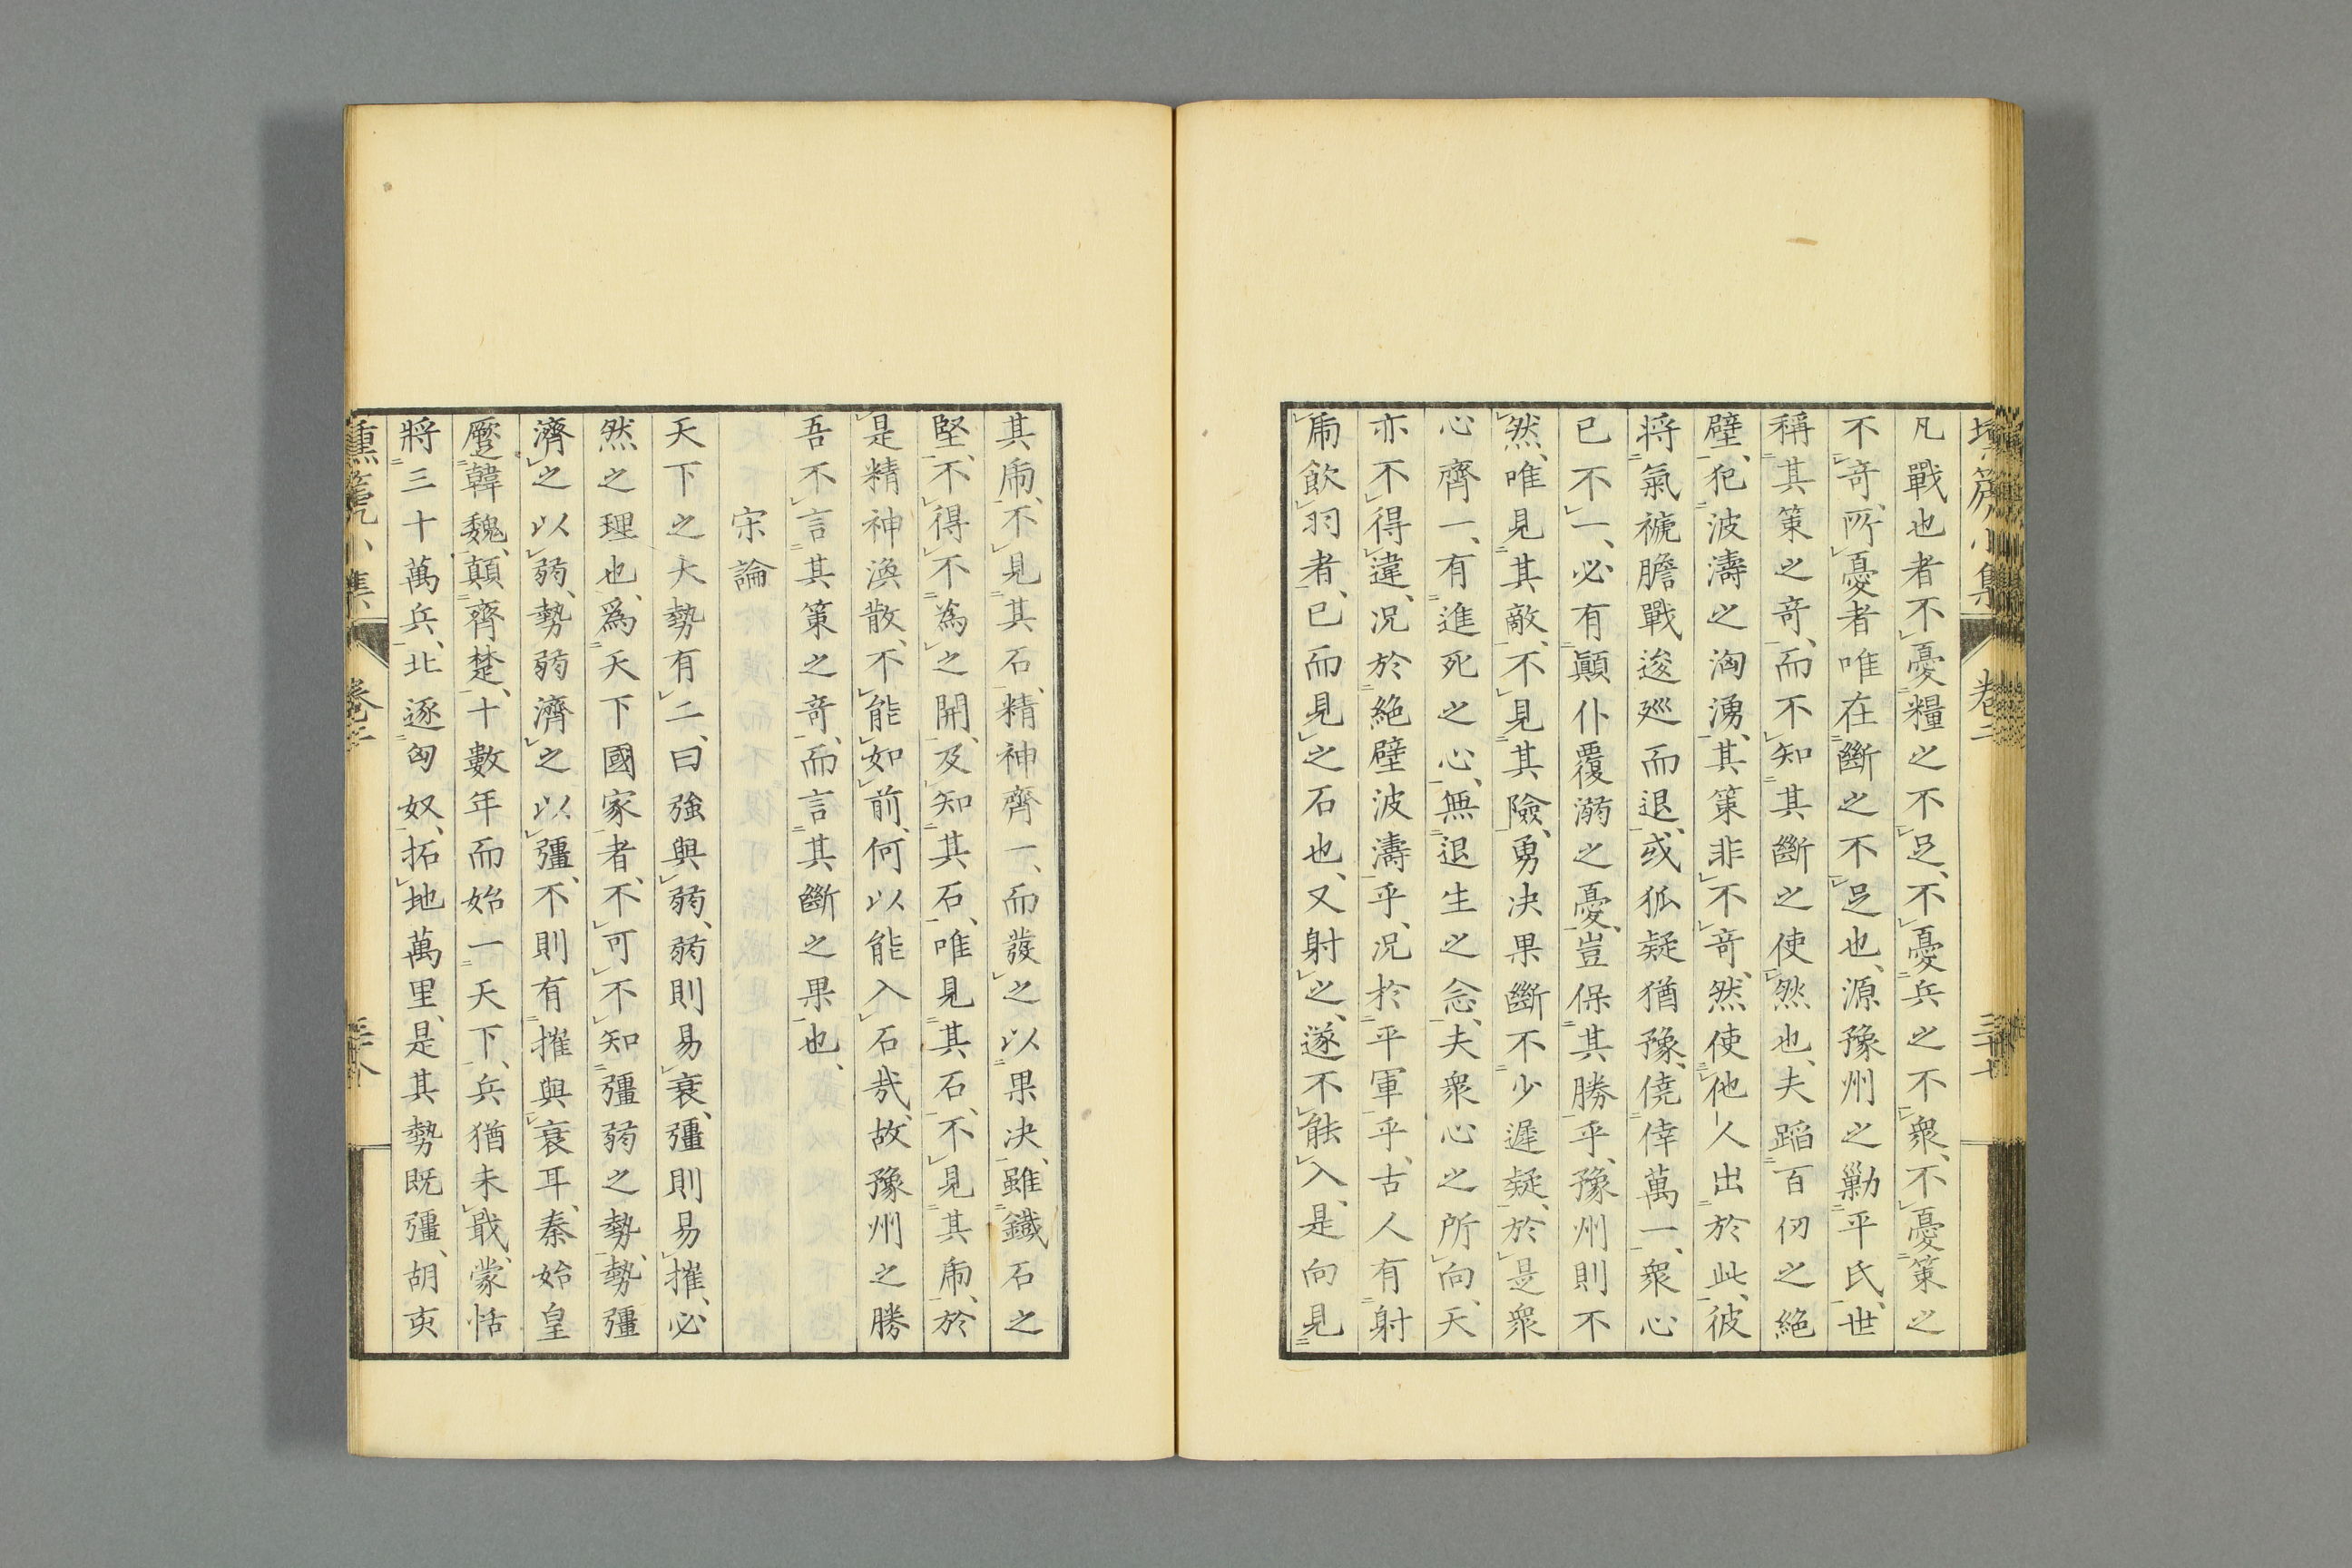 凡戰也者不憂糧之不足、不憂兵之不衆、不憂策之
不竒、所憂者唯在斷之不足也、源豫州之勦平氏、世
稱其策之竒、而不知其斷之使然也、夫蹈百仞之絶
壁、犯波濤之洶湧、其策非不竒、然使他人出於此、彼
將氣褫膽戰逡廵而退、或狐疑猶豫、僥倖萬一、衆心
已不一、必有顚仆覆溺之憂、豈保其勝乎、豫州則不
然、唯見其敵、不見其險、勇决果斷不少遲疑、於是衆
心齊一、有進死之心、無退生之念、夫衆心之所向、天
亦不得違、况於絶壁波濤乎、况於平軍乎、古人有射
乕飲羽者、已而見之石也、又射之、遂不能入、是向見
其乕、不見其石、精神齊一、而發之以果决、雖鐵石之
堅、不得不為之開、及知其石、唯見其石、不見其乕、於
是精神渙散、不能如前、何以能入石哉、故豫州之勝
吾不言其策之竒、而言其斷之果也、
宋論
天下之大勢有二、曰強與弱、弱則易衰、彊則易摧、必
然之理也、爲天下國家者、不可不知彊弱之勢、勢彊
濟之以弱、勢弱濟之以彊、不則有摧與衰耳、秦始皇
蹙韓魏、顛齊楚、十數年而始一天下、兵猶未戢、蒙恬
將三十萬兵、北逐匈奴、拓地萬里、是其勢既彊、胡亥